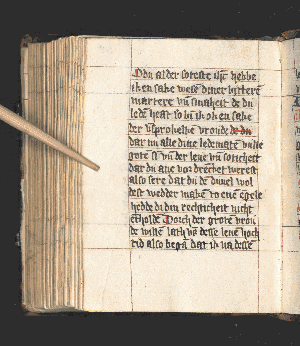 O du alder soteste ihc hebbe
ik en sake wese diner bittere
martere vn smaheit de du
lede hest so bu ik ok en sake
der vnsprokelike vroude de du
dar in alle dine ledemate
grote is vn der leue vn soticheit
dar du ane vordrecket werest
also sere dat du de duuel vol
dest wedder make to ene egele
hedde di din rechticheit nicht
Dorch der grote vrou
de wille lath vn desse leue hoch
tid also bega dat ik na desse